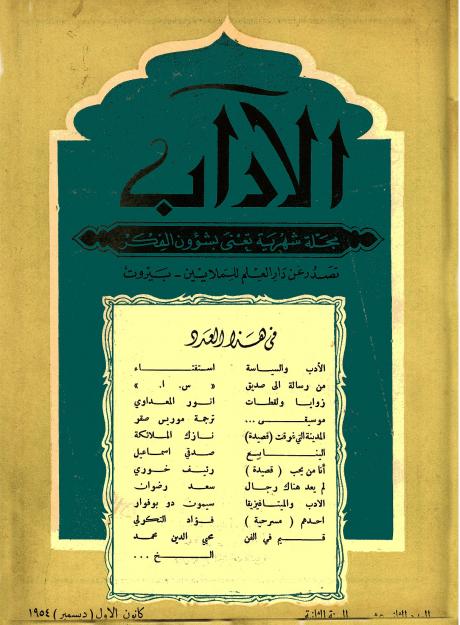 الآداب
مجلة شهرية تعنى بشؤون الفكر
تصدر عن دار العلم للملايين - بيروت
في هذا العدد
الأدب والسياسة استفتاء
من رسالة الى صديق « س . ا . »
زوايا ولقطات انور المعداوي
موسيقى ... ترجمة موريس صقر
المدينة التي غرقت (قصيدة) نازك الملائكة
الينابيع صدقي اسماعيل
أنا من يحب ( قصيدة ) رئيف خوري
لم يعد هناك رجال سعد رضوان
الادب والميتافيزيقا سيمون دو بوفوار
احدهم ( مسرحية ) فؤاد التكرلي
قيم في الفن محي الدين محمد
الخ ...
السنة الثانية
كانون الاول ( ديسمبر ) ١٩٥٤